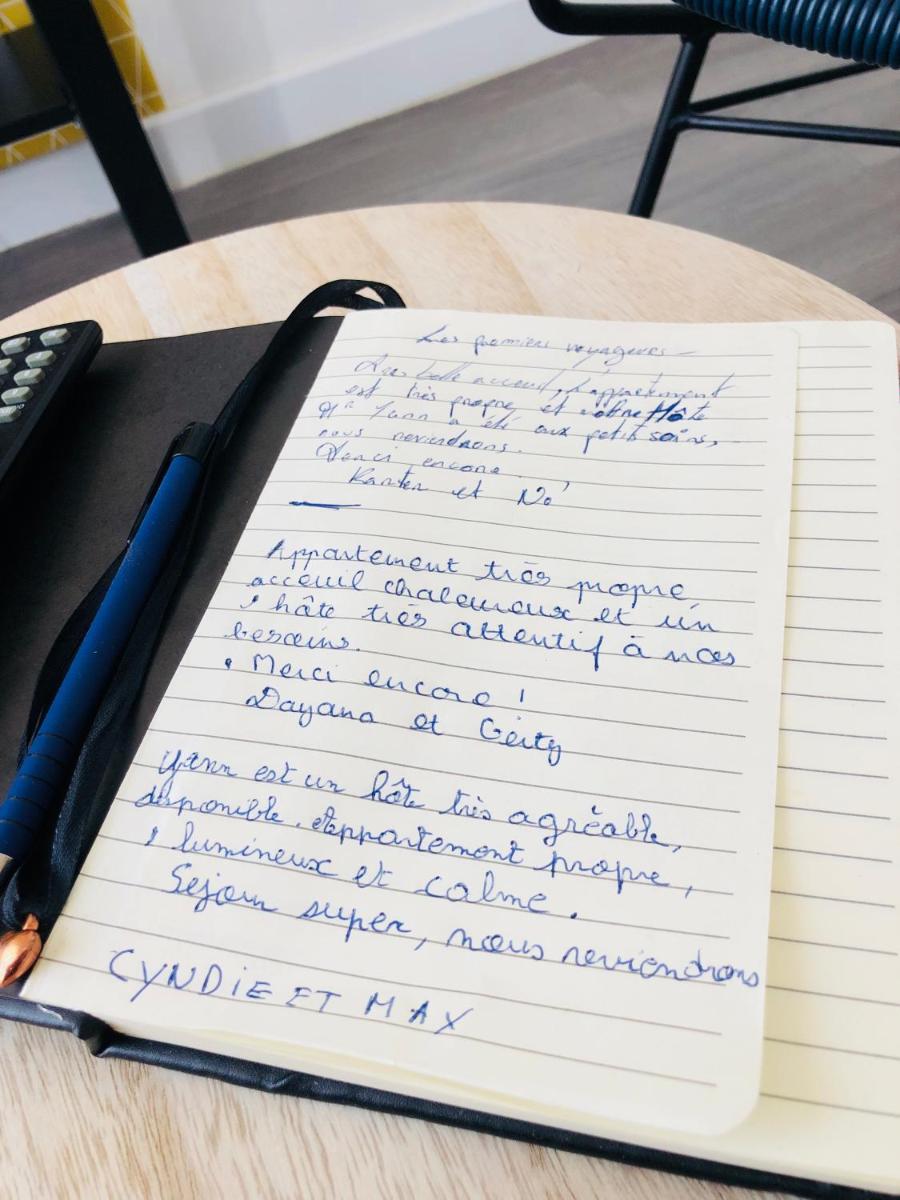 Les premiers voyageurs -
Très belle acceuil, l'appartement
est très propre et nôtre Hôte
Mr Yann a été aux petit soins,
nous reviendrons.
Merci encore
et No'
Appartement très propre
acceuil chaleureux et un
hôte très attentif à nos
besoins.
Merci encore !
Dayana et
Yann est un hôte très agréable,
disponible. Appartement propre,
lumineux et calme.
Sejour super, nous reviendrons
CYNDIE ET MAX